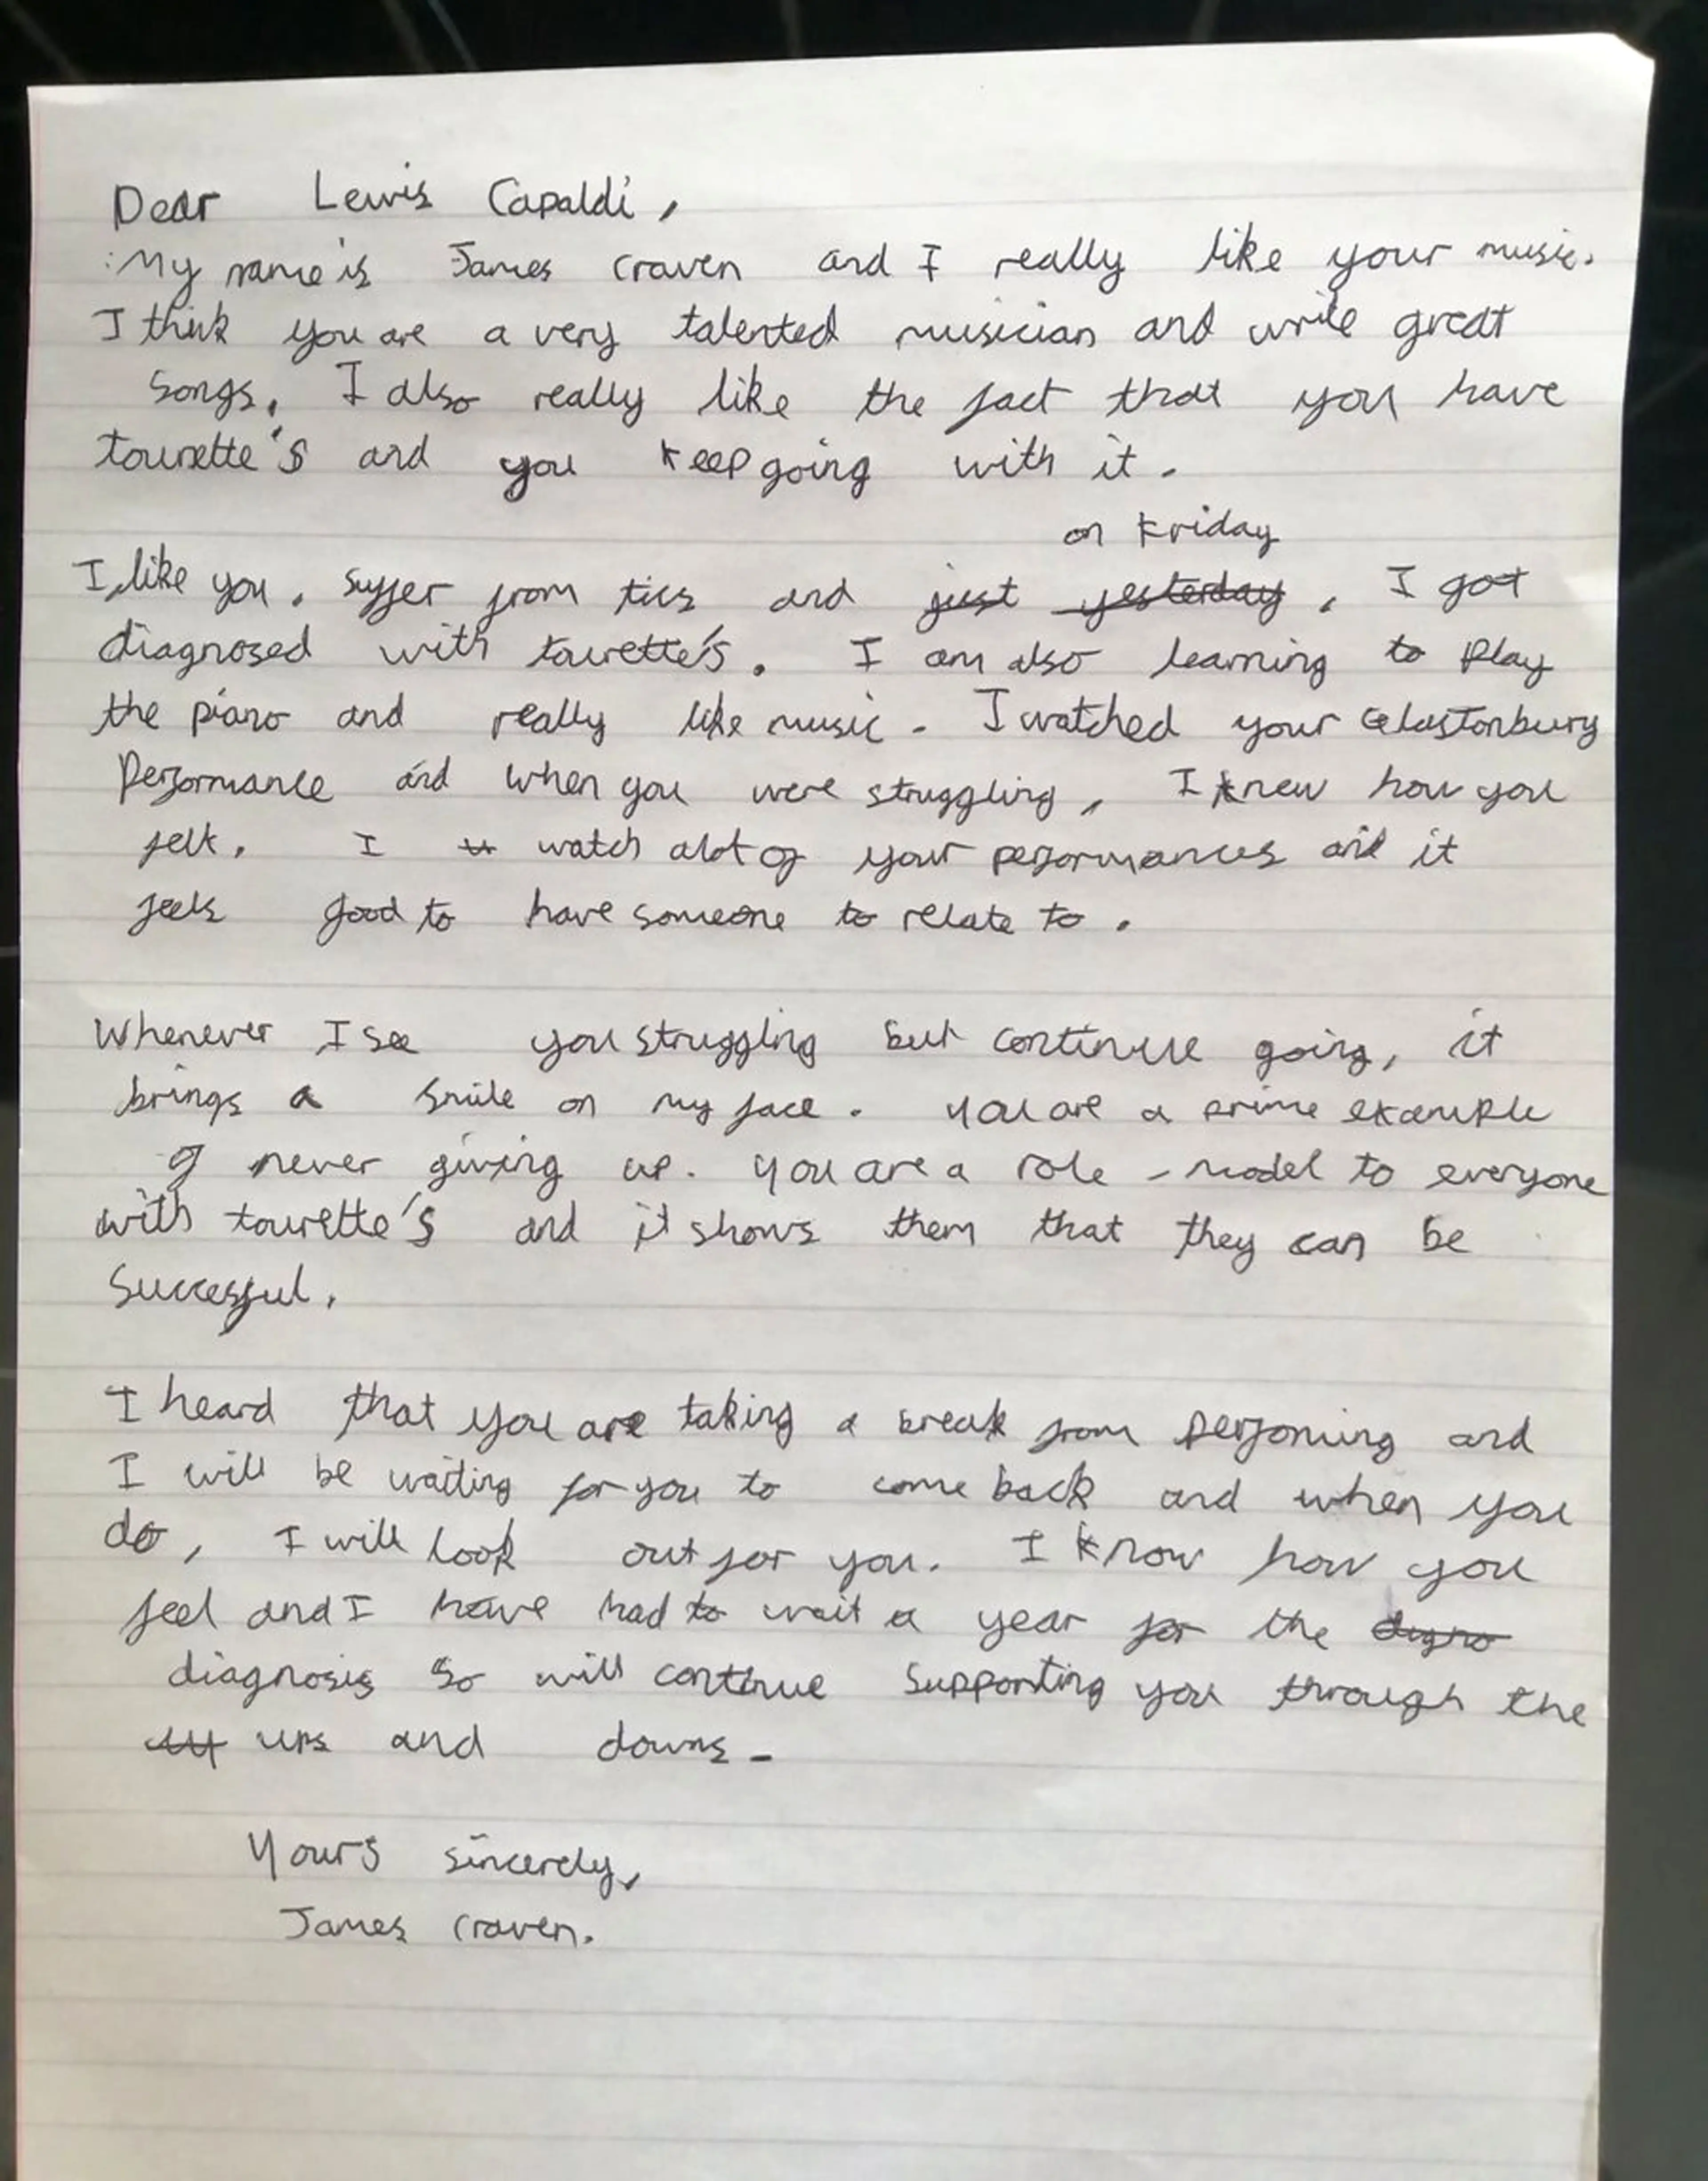 Dear Lewis Capaldi,
My name is James Craven and I really like your music.
I think you are a very talented musician and write great
songs. I also really like the fact that you have
tourette's and you keep going with it.
on Friday
I, like you, suffer from tics and just yesterday, I got
diagnosed with tourette's. I am also learning to play
the piano and really like music. I watched your Glastonbury
performance and when you were struggling, I knew how you
felt. I watch alot of your performances and it
feels good to have someone to relate to.
Whenever I see you struggling but continue going, it
brings a smile on my face. You are a prime example
of never giving up. You are a role-model to everyone
with tourette's and it shows them that they can be
successful.
I heard that you are taking a break from performing and
I will be waiting for you to come back and when you
do, I will look out for you. I know how you
feel and I have had to wait a year for the
diagnosis so will continue supporting you through the
ups and downs.
Yours sincerely,
James Craven.